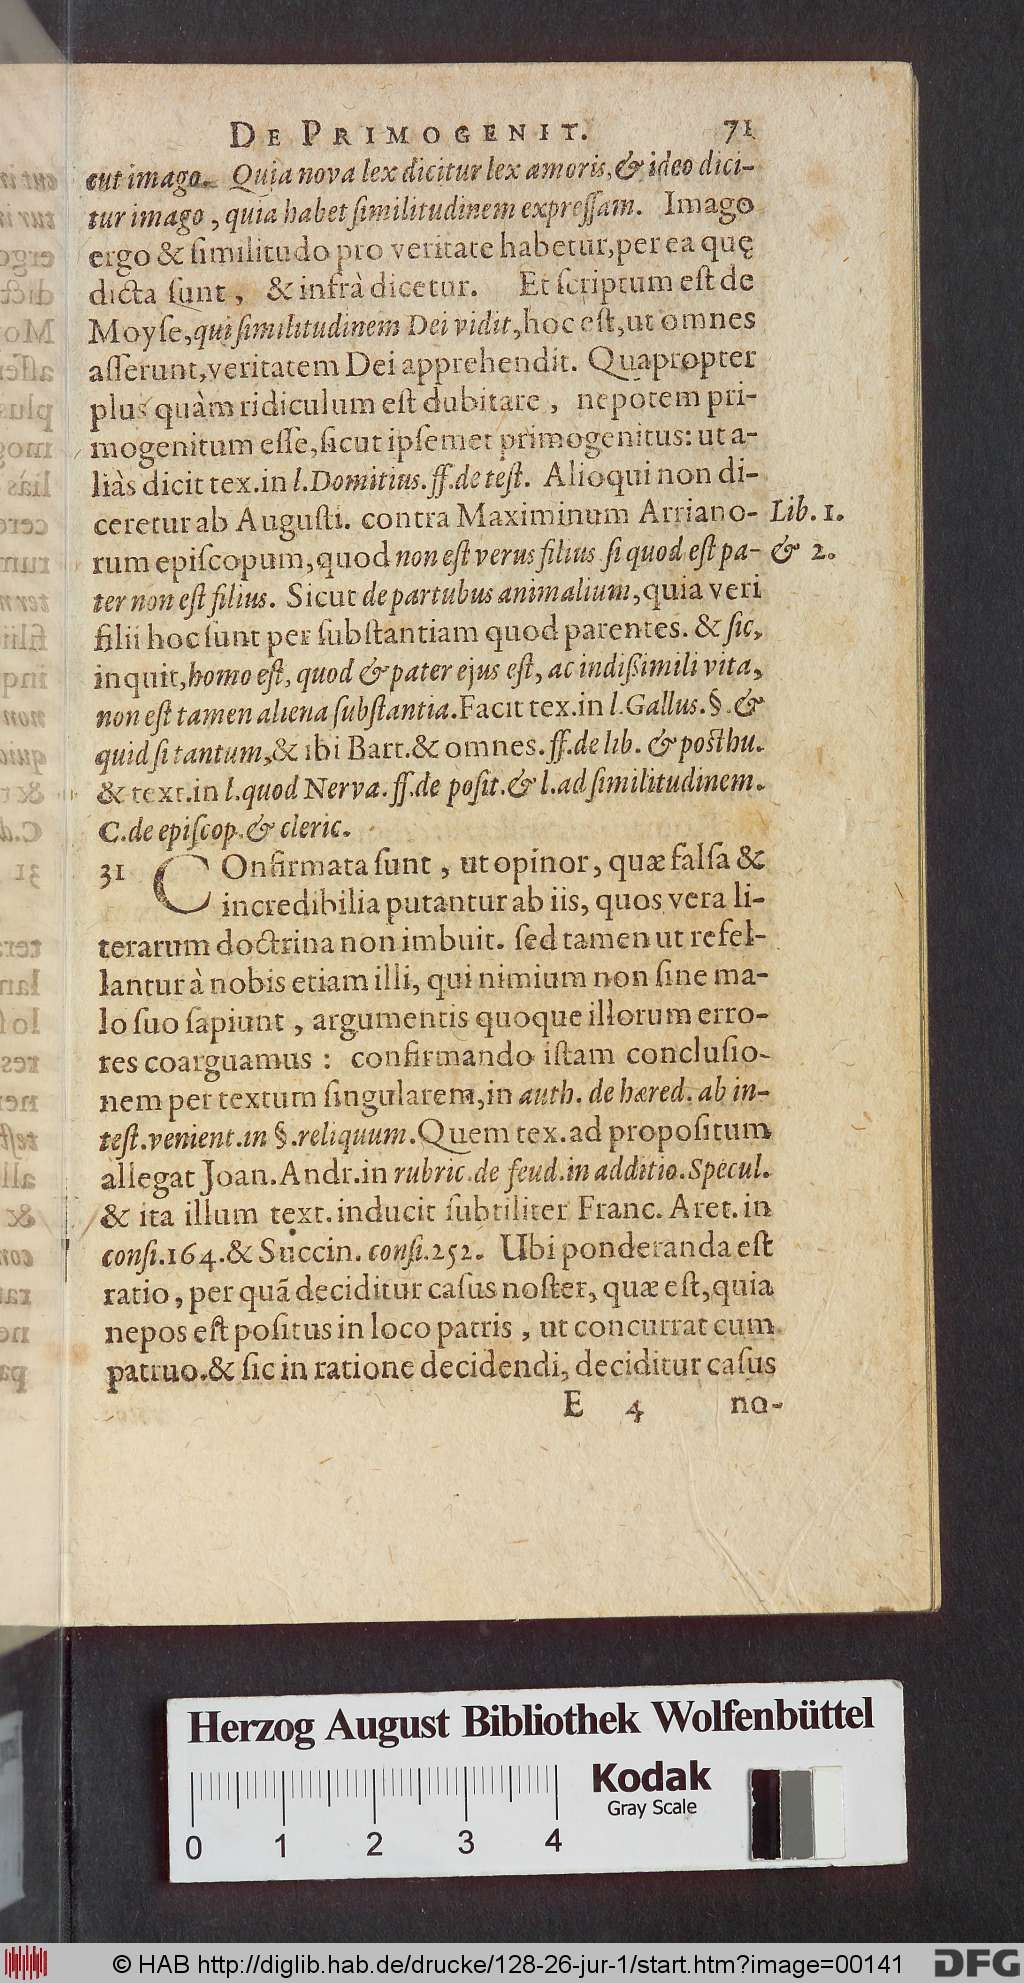 DE PRIMOGENIT. 71
cut imago. Quia nova lex dicitur lex amoris, & ideo dici-
tur imago, quia habet ſimilitudinem expreſſam. Imago
ergo & ſimilitudo pro veritate habetur, per ea quę
dicta ſunt, & infrà dicetur. Et ſcriptum eſt de
Moyſe, qui ſimilitudinem Dei vidit, hoc eſt, ut omnes
aſſerunt, veritatem Dei apprehendit. Quapropter
plus quàm ridiculum eſt dubitare, nepotem pri-
mogenitum eſſe, ſicut ipſemet primogenitus: ut a-
liàs dicit tex. in l. Domitius. ff. de teſt. Alioqui non di-
ceretur ab Auguſti. contra Maximinum Arriano- Lib. 1.
rum epiſcopum, quod non eſt verus filius ſi quod eſt pa- & 2.
ter non eſt filius. Sicut de partubus animalium, quia veri
filii hoc ſunt per ſubſtantiam quod parentes. & ſic,
inquit, homo eſt, quod & pater ejus eſt, ac indißimili vita,
non eſt tamen aliena ſubſtantia. Facit tex. in l. Gallus. §. &
quid ſi tantum, & ibi Bart. & omnes. ff. de lib. & poſthu.
& text. in l. quod Nerva. ff. de poſit. & l. ad ſimilitudinem.
C. de epiſcop. & cleric.
31 COnfirmata ſunt, ut opinor, quæ falſa &
incredibilia putantur ab iis, quos vera li-
terarum doctrina non imbuit. ſed tamen ut refel-
lantur à nobis etiam illi, qui nimium non ſine ma-
lo ſuo ſapiunt, argumentis quoque illorum erro-
res coarguamus: confirmando iſtam concluſio-
nem per textum ſingularem, in auth. de hæred. ab in-
teſt. venient. in §. reliquum. Quem tex. ad propoſitum
allegat Joan. Andr. in rubric. de feud. in additio. Specul.
& ita illum text. inducit ſubtiliter Franc. Aret. in
conſi. 164. & Succin. conſi. 252. Ubi ponderanda eſt
ratio, per quã deciditur caſus noſter, quæ eſt, quia
nepos eſt poſitus in loco patris, ut concurrat cum
patruo. & ſic in ratione decidendi, deciditur caſus
E 4 no-
Herzog August Bibliothek Wolfenbüttel
Kodak
Gray Scale
0 1 2 3 4
© HAB http://diglib.hab.de/drucke/128-26-jur-1/start.htm?image=00141
DFG